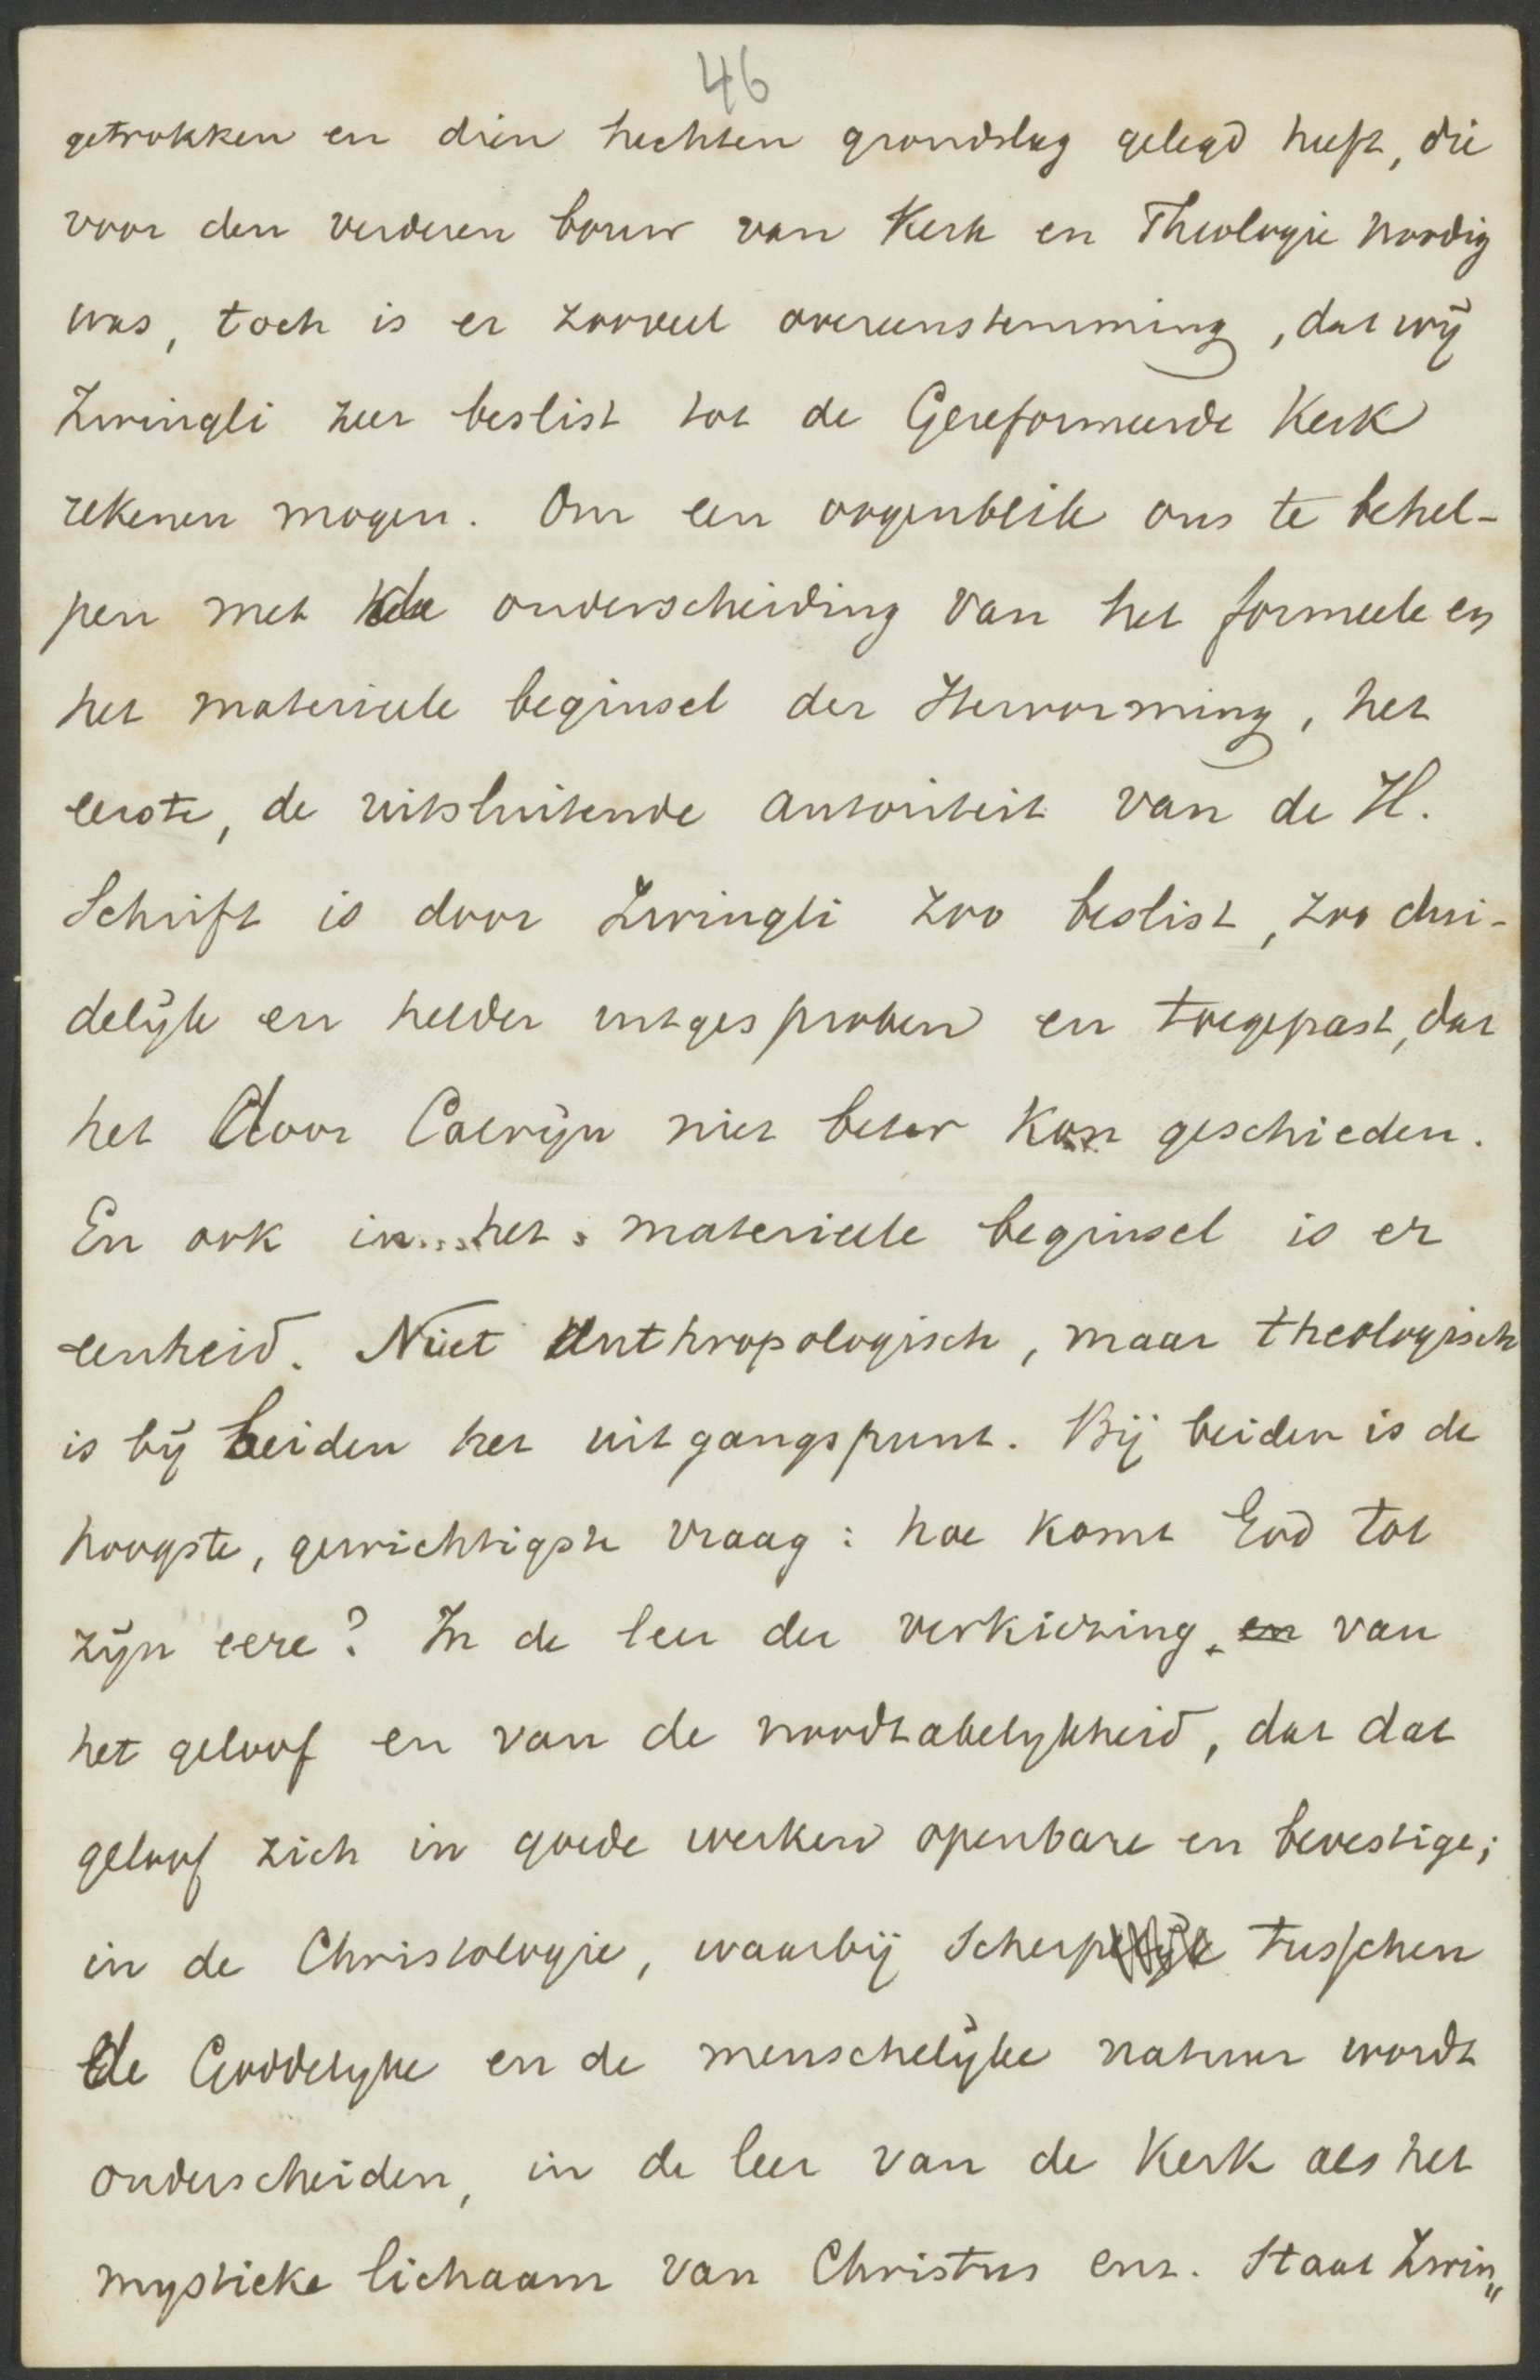 46
getrokken en dien hechten grondslag gelegd heeft, die
voor den verderen bouw van Kerk en Theologie noodig
was, toch is er zooveel overeenstemming, dat wij
Zwingli zeer beslist tot de Gereformeerde Kerk
rekenen mogen. Om een oogenblik ons te behel-
pen met de onderscheiding van het formeele en
het materieele beginsel der Hervorming, het
eerste, de uitsluitende autoriteit van de H.
Schrift is door Zwingli zoo beslist, zoo dui-
delijk en helder uitgesproken en toegepast, dat
het door Calvijn niet beter kon geschieden.
En ook in het materieele beginsel is er
eenheid. Niet anthropologisch, maar theologisch
is bij beiden het uitgangspunt. Bij beiden is de
hoogste, gewichtigste vraag: hoe komt God tot
zijn eere? In de leer der verkiezing, en van
het geloof en van de noodzakelijkheid, dat dat
geloof zich in goede werken openbare en bevestige;
in de Christologie, waarbij scherp tusschen
de Goddelijke en de menschelijke natuur wordt
onderscheiden, in de leer van de Kerk als het
mystieke lichaam van Christus enz. staat Zwin„